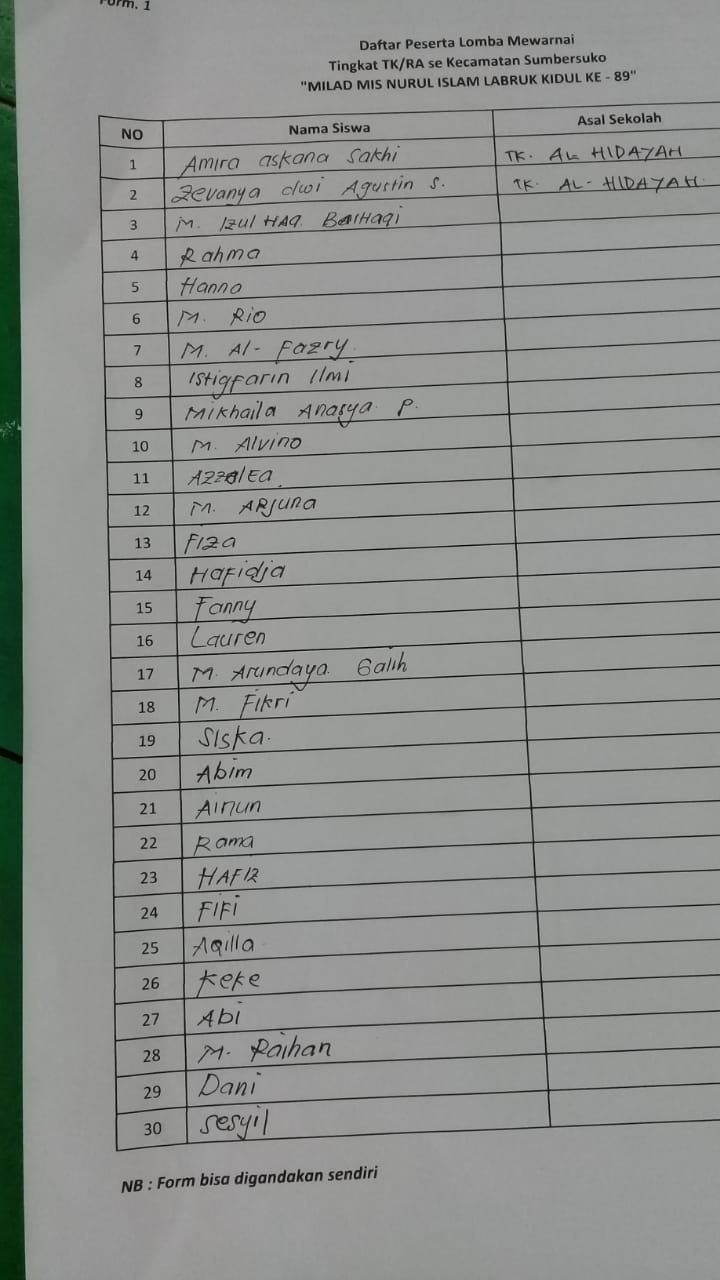 Form. 1
Daftar Peserta Lomba Mewarnai
Tingkat TK/RA se Kecamatan Sumbersuko
"MILAD MIS NURUL ISLAM LABRUK KIDUL KE - 89"
NO Nama Siswa Asal Sekolah
1 Amira askana Sakhi TK. AL HIDAYAH
2 Zevanya dwi Agustin S. TK. AL - HIDAYAH
3 M. Izul HAQ. BaiHaqi
4 Rahma
5 Hanno
6 M. Rio
7 M. Al - Fazry.
8 Istigfarin Ilmi
9 Mikhaila Anasya. P.
10 M. Alvino
11 Azzalea.
12 M. ARjuna
13 Fiza
14 Hafidja
15 Fanny
16 Lauren
17 M. Arundaya. Galih
18 M. Fikri
19 Siska.
20 Abim
21 Ainun
22 Rama
23 HAFIZ
24 FIFi
25 Aqilla
26 Keke
27 Abi
28 M. Raihan
29 Dani
30 Sesyil
NB : Form bisa digandakan sendiri